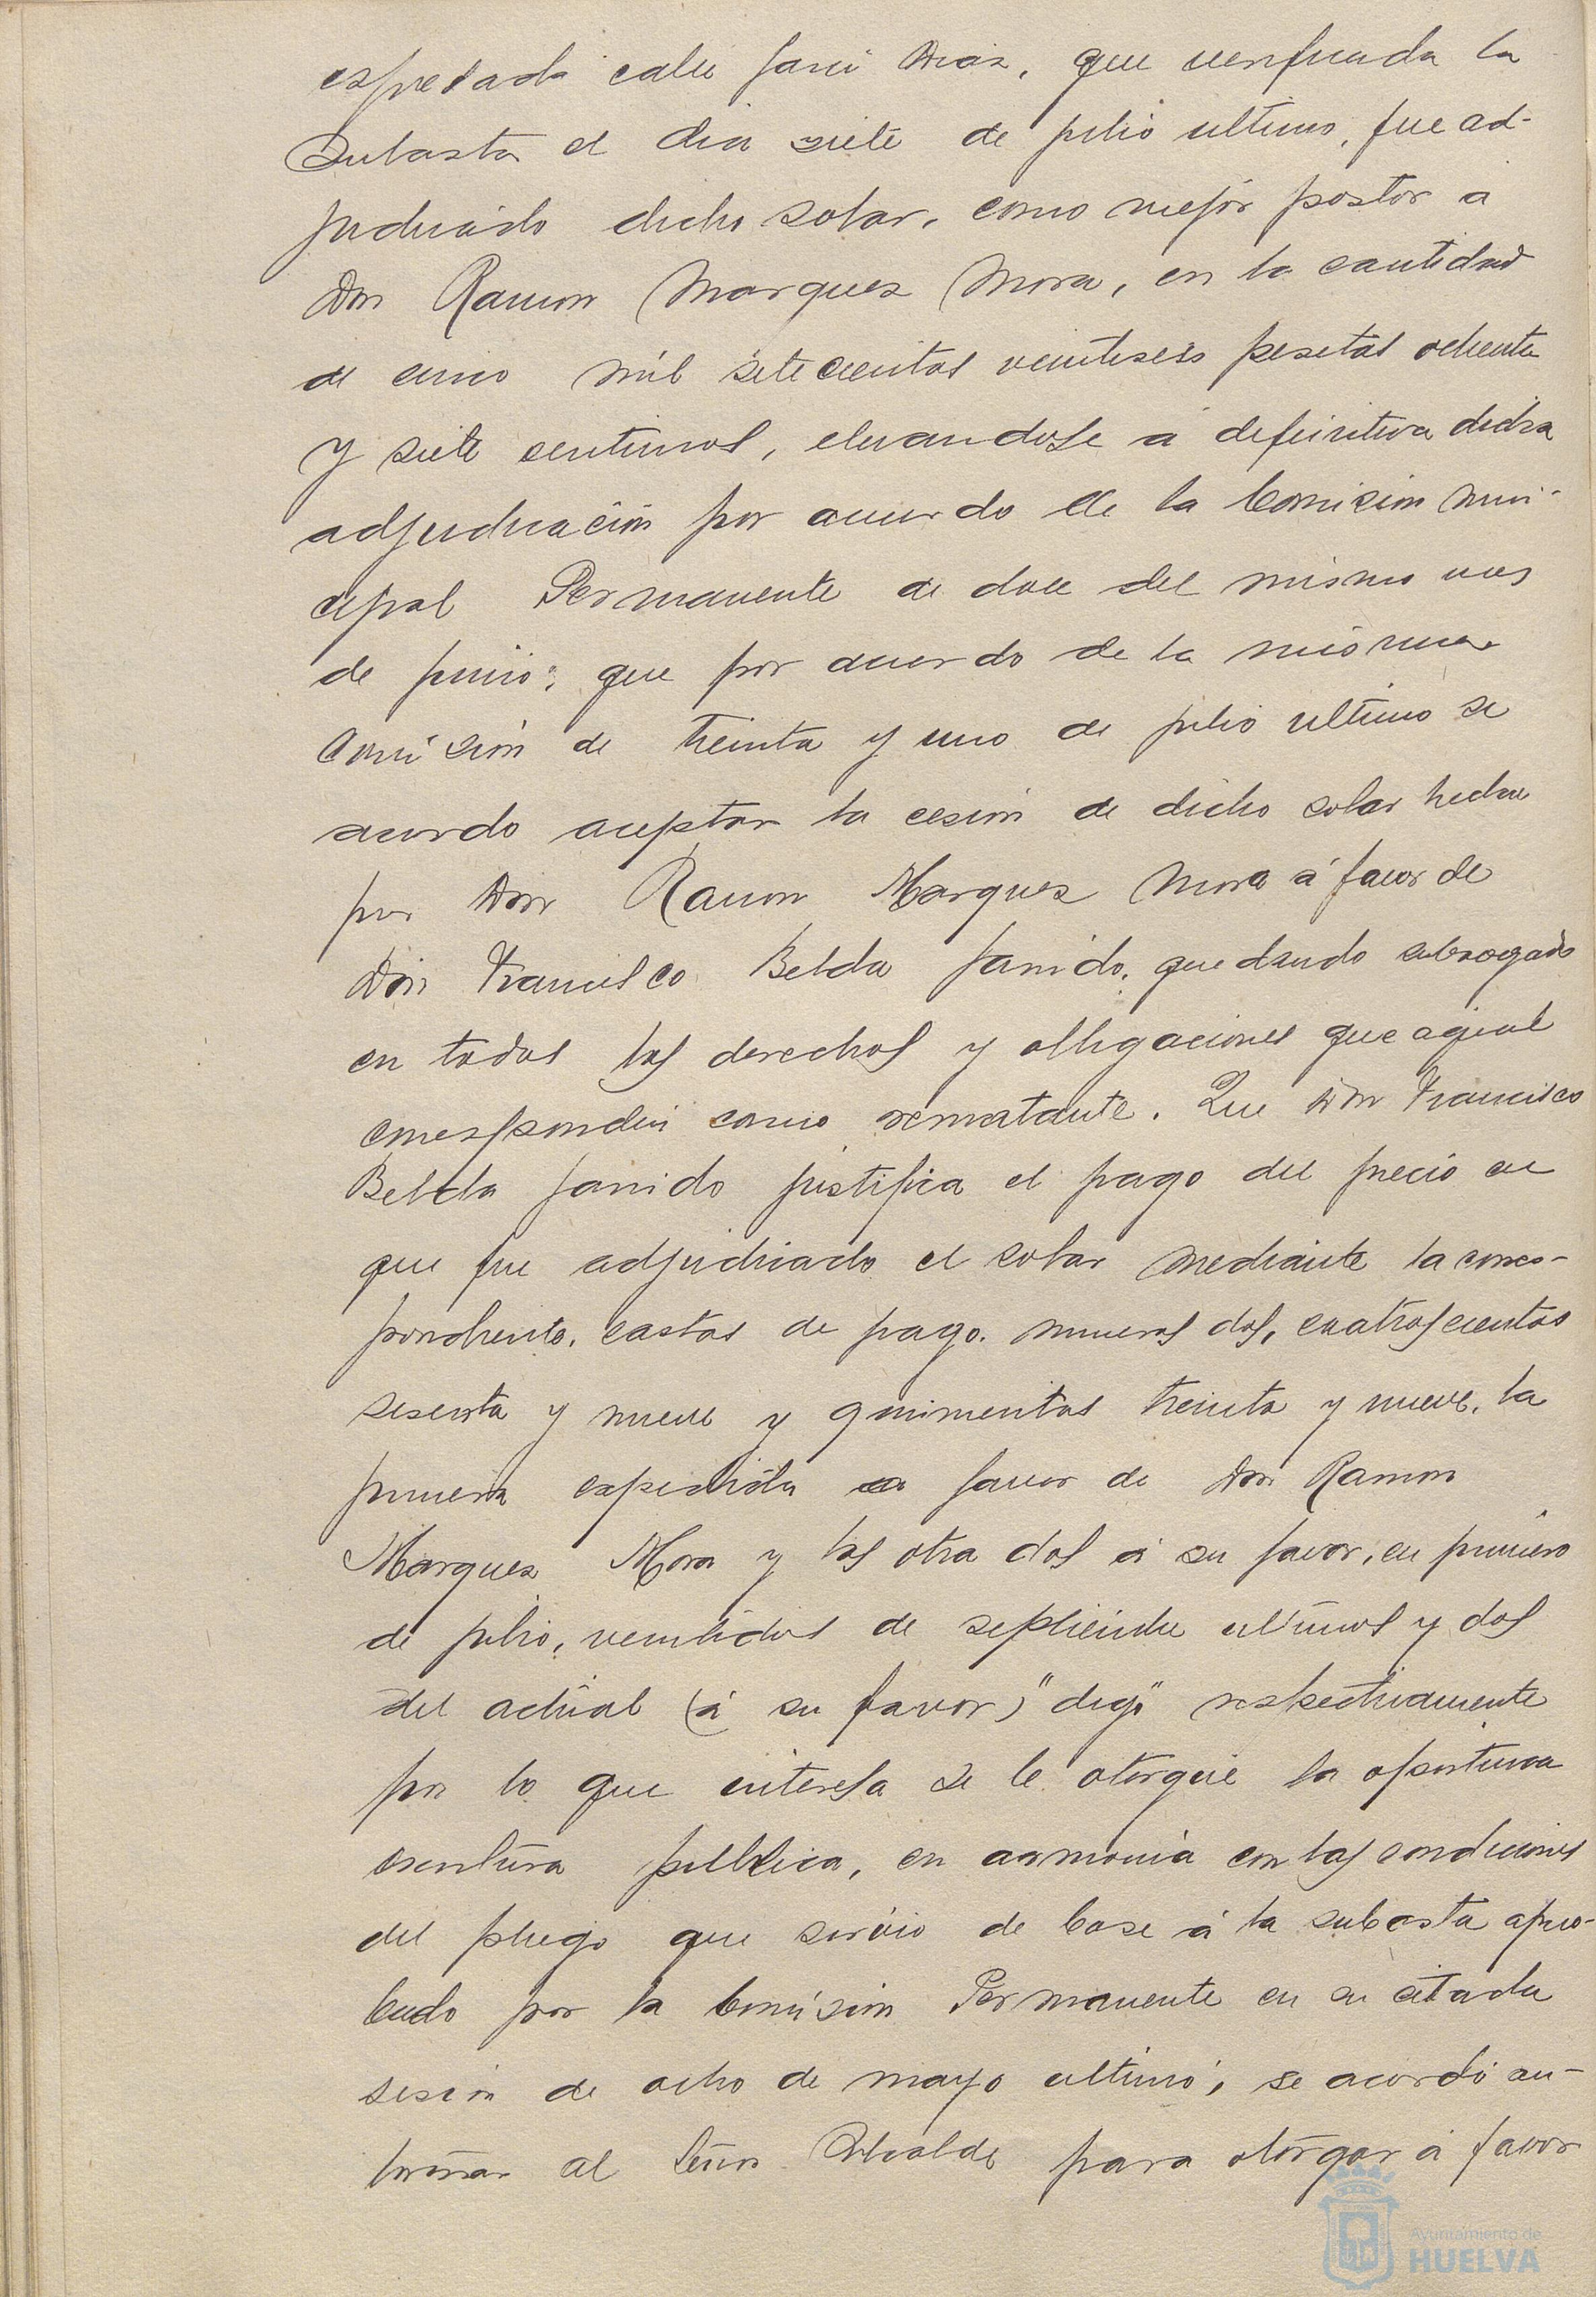 espresada calle Jaci Diaz, que verificada la
Subasta el dia siete de julio ultimo, fue ad-
judicado dicho solar, como mejor postor a
Don Ramon Marquez Mora, en la cantidad
de cinco mil setecientas veintiseis pesetas ochenta
y siete centimos, elevandose a definitiva dicha
adjudicación por acuerdo de la Comision Muni-
cipal Permanente de doce del mismo mes
de junio; que por acuerdo de la misma
Comisión de treinta y uno de julio ultimo se
acordo aceptar la cesión de dicho solar hecha
por Don Ramon Marquez Mora á favor de
Don Francisco Belda Garrido, quedando subrogado
en todos los derechos y obligaciones que aquel
correspondia como rematante. Que Don Francisco
Belda Garrido justifica el pago del precio en
que fue adjudicado el solar mediante la corres-
pondiente, cartas de pago. numeros dos, cuatroscientas
sesenta y nueve y quinientas treinta y nueve, la
primera expedida a favor de Don Ramon
Marquez Mora y las otra dos á su favor, en primero
de julio, veintidos de septiembre ultimos y dos
del actual (á su favor) "digo" respectivamente
por lo que interesa se le otorgue la oportuna
escritura publica, en armonia con las condiciones
del pliego que sirvio de base á la subasta apro-
bado por la Comisión Permanente en su citada
sesión de ocho de mayo ultimo, se acordó au-
torizar al Señor Alcalde para otorgar á favor
Ayuntamiento de
HUELVA